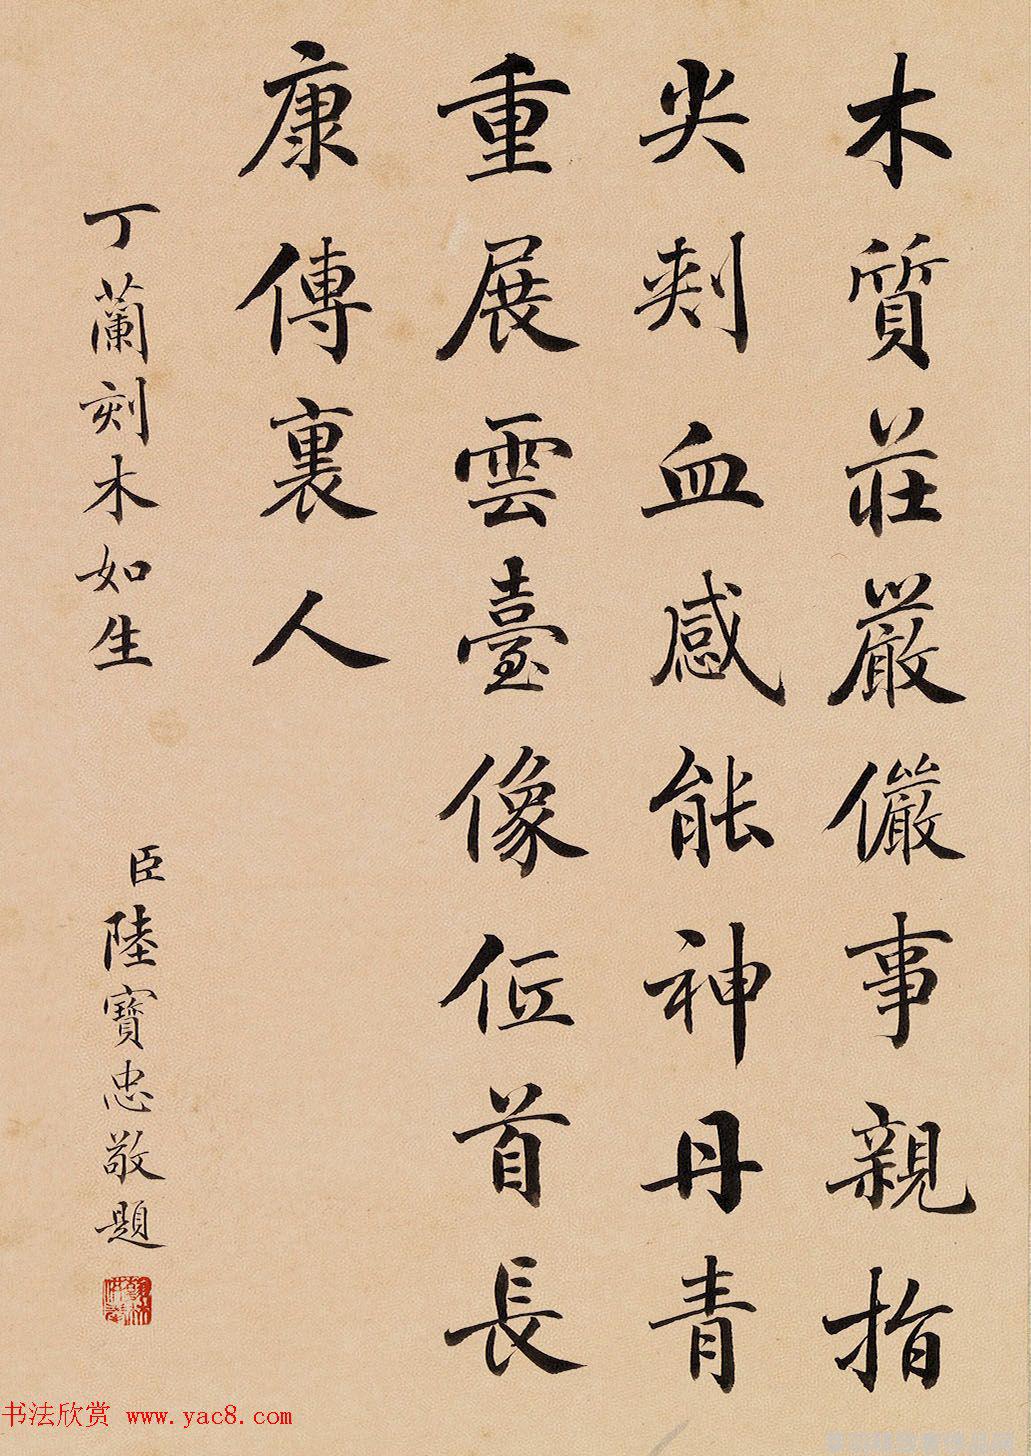 木質莊嚴儼事親指
尖刺血感能神丹青
重展雲臺像低首長
康傳裏人
丁蘭刻木如生
臣陸寶忠敬題
书法欣赏 www.yac8.com